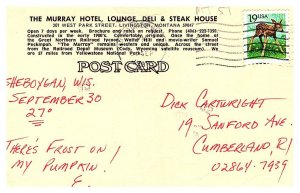 THE MURRAY HOTEL, LOUNGE, DELI & STEAK HOUSE
201 WEST PARK STREET, LIVINGSTON, MONTANA 59047
Open 7 days per week. Brochure and rates on request. Phone (406)
Constructed in the early 1900's. Comfortable, original. Once the home of
the Great Northern Railroad tycoon, Walter Hill and movie-writer Samuel
Peckinpah. "The Murray" remains western and unique. Across the street
from the Railroad Depot Museum (Cody, Wyoming satellite museum). We
are 57 miles from Yellowstone National Park.
POST CARD
19 USA
SHEBOYGAN, WIS.
SEPTEMBER 30
27°
THERE'S FROST ON
MY PUMPKIN!
DICK CARTWRIGHT
19 SANFORD AVE.
CUMBERLAND, RI
02864-7939